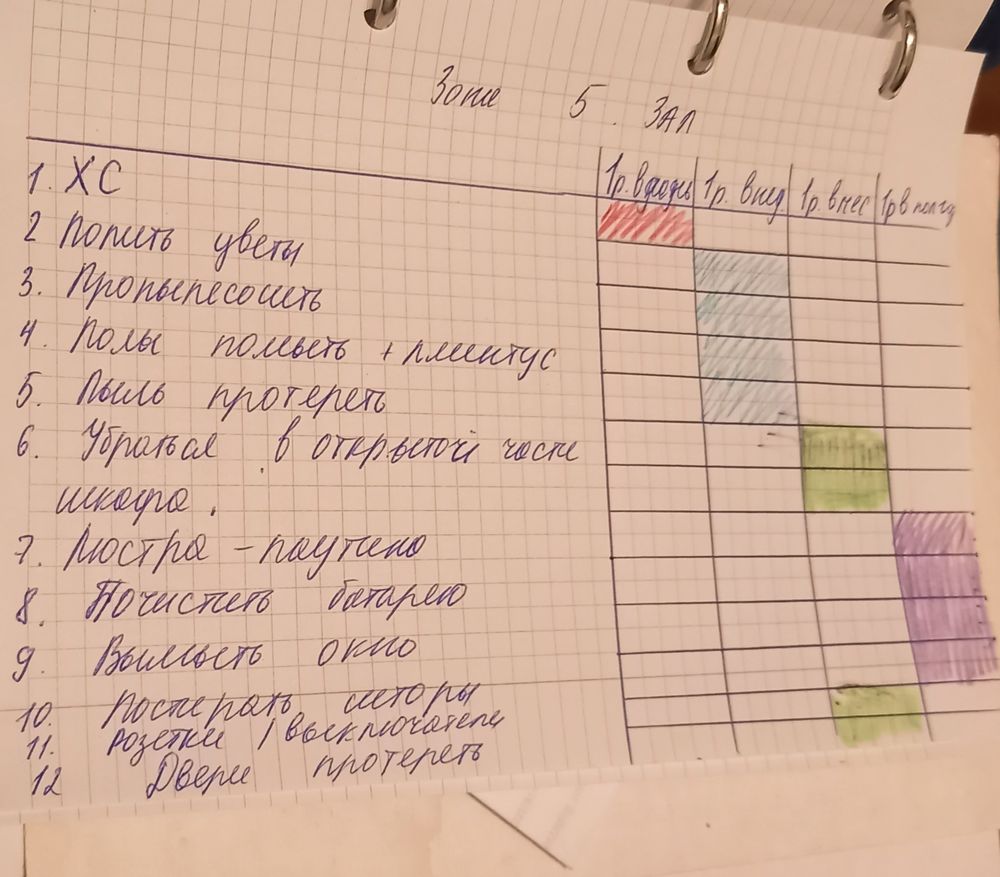 Зона 5. ЗАЛ
1р. в день 1р. в нед 1р. в мес 1р в полго
1. ХС
2 Полить цветы
3. Пропылесосить
4. Полы помыть + плинтус
5. Пыль протереть
6. Убраться в открытой части
шкафа.
7. Люстра - паутина
8. Почистить батарею
9. Вымыть окно
10. Постирать шторы
11. розетки / выключатели
12 Двери протереть